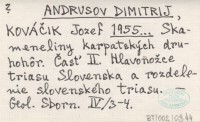 2
ANDRUSOV DIMITRIJ,
KOVÁČIK Jozef 1955... Ska-
meneliny karpatských dru-
hohôr. Časť II. Hlavonožce
triasu Slovenska a rozdele-
nie slovenského triasu.
Geol. Sborn. IV/3-4.